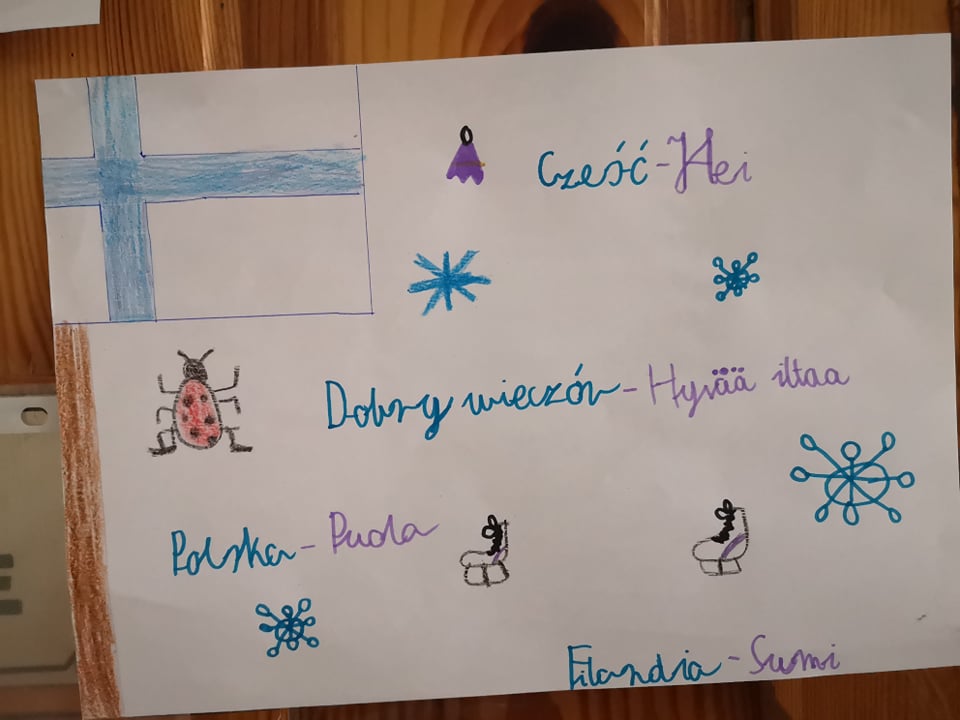 Cześć - Hei
Dobry wieczór - Hyvää iltaa
Polska - Puola
Filandia - Suomi